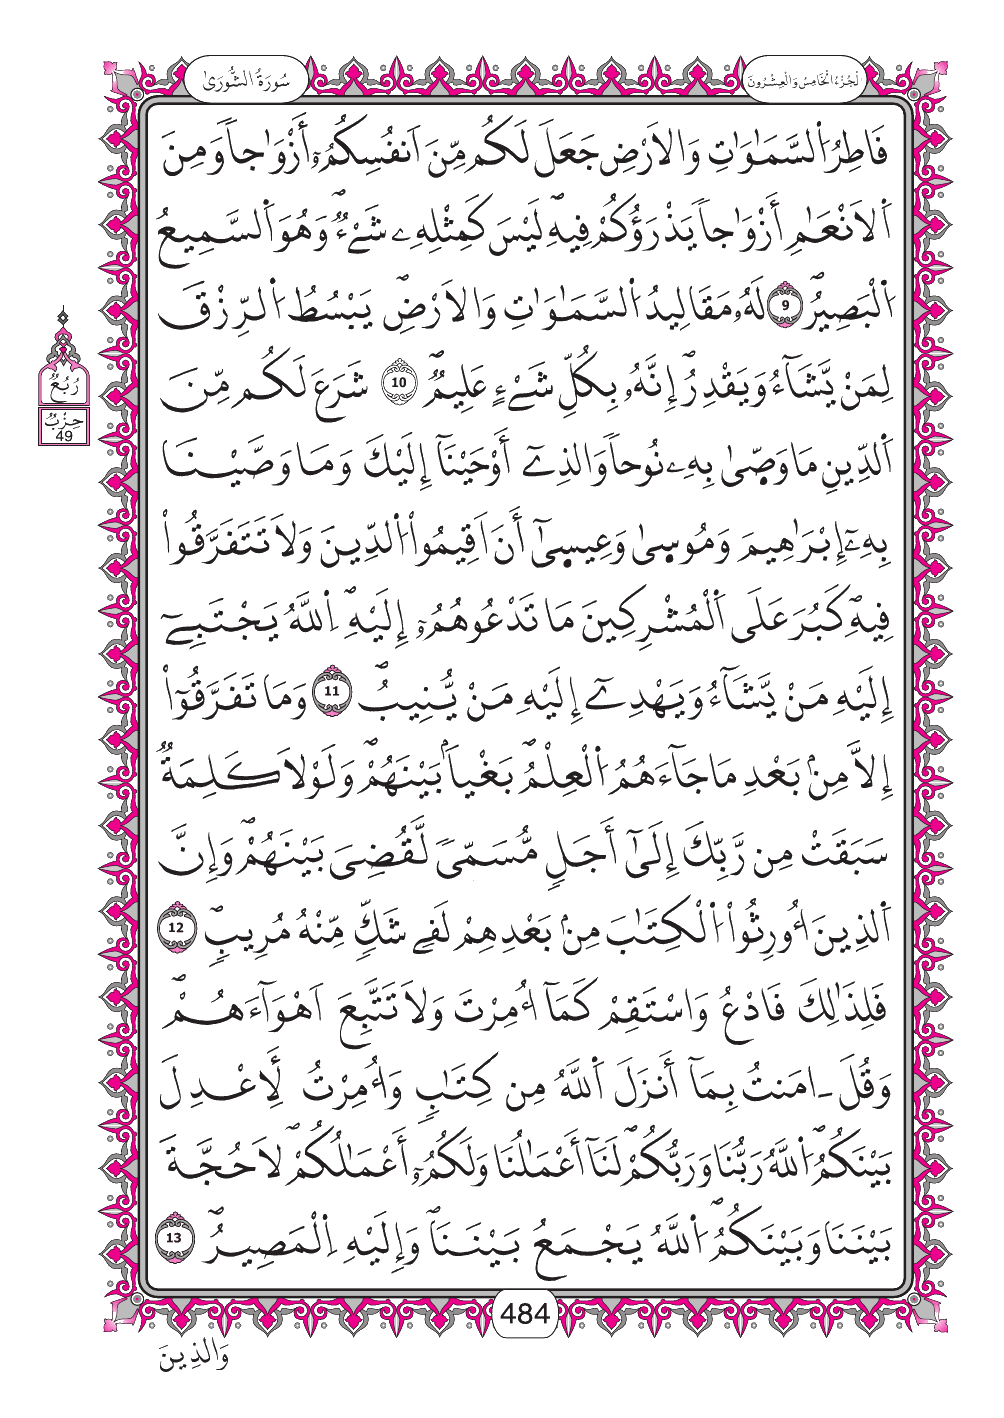 سُورَةُ الشُّورَىٰ
اَلْجُزْءُ الْخَامِسُ وَالْعِشْرُونَ
فَاطِرُ اُ۬لسَّمَٰوَٰتِ وَالَارْضِ جَعَلَ لَكُم مِّنَ اَنفُسِكُمُۥٓ أَزْوَٰجاٗ وَمِنَ
اَ۬لَانْعَٰمِ أَزْوَٰجاٗ يَذْرَؤُكُمْ فِيهِۖ لَيْسَ كَمِثْلِهِۦ شَےْءٞۖ وَهُوَ اَ۬لسَّمِيعُ
اُ۬لْبَصِيرُۖ 9 لَهُۥ مَقَالِيدُ اُ۬لسَّمَٰوَٰتِ وَالَارْضِۖ يَبْسُطُ اُ۬لرِّزْقَ
لِمَنْ يَّشَآءُ وَيَقْدِرُۖ إِنَّهُۥ بِكُلِّ شَےْءٍ عَلِيمٞۖ 10 شَرَعَ لَكُم مِّنَ
اَ۬لدِّينِ مَا وَصّ۪ىٰ بِهِۦ نُوحاٗ وَالذِےٓ أَوْحَيْنَآ إِلَيْكَ وَمَا وَصَّيْنَا
بِهِۦٓ إِبْرَٰهِيمَ وَمُوس۪ىٰ وَعِيس۪ىٰٓ أَنَ اَقِيمُواْ اُ۬لدِّينَ وَلَا تَتَفَرَّقُواْ
فِيهِۖ كَبُرَ عَلَى اَ۬لْمُشْرِكِينَ مَا تَدْعُوهُمُۥٓ إِلَيْهِۖ اِ۬للَّهُ يَجْتَبِےٓ
إِلَيْهِ مَنْ يَّشَآءُ وَيَهْدِےٓ إِلَيْهِ مَنْ يُّنِيبُۖ 11 وَمَا تَفَرَّقُوٓاْ
إِلَّا مِنۢ بَعْدِ مَا جَآءَهُمُ اُ۬لْعِلْمُۖ بَغْياَۢ بَيْنَهُمْۖ وَلَوْلَا كَلِمَةٞ
سَبَقَتْ مِن رَّبِّكَ إِلَىٰٓ أَجَلٖ مُّسَمّىٗ لَّقُضِيَ بَيْنَهُمْۖ وَإِنَّ
اَ۬لذِينَ أُورِثُواْ اُ۬لْكِتَٰبَ مِنۢ بَعْدِهِمْ لَفِے شَكّٖ مِّنْهُ مُرِيبٖۖ 12
فَلِذَٰلِكَ فَادْعُ وَاسْتَقِمْ كَمَآ أُمِرْتَ وَلَا تَتَّبِعَ اَهْوَآءَهُمْۖ
وَقُلَ ـامَنتُ بِمَآ أَنزَلَ اَ۬للَّهُ مِن كِتَٰبٖ وَأُمِرْتُ لِأَعْدِلَ
بَيْنَكُمُۖ اُ۬للَّهُ رَبُّنَا وَرَبُّكُمْۖ لَنَآ أَعْمَٰلُنَا وَلَكُمُۥٓ أَعْمَٰلُكُمْۖ لَا حُجَّةَ
بَيْنَنَا وَبَيْنَكُمُۖ اُ۬للَّهُ يَجْمَعُ بَيْنَنَاۖ وَإِلَيْهِ اِ۬لْمَصِيرُۖ 13
رُبُعُ
حِزْبٌ
49
484
وَالذِينَ